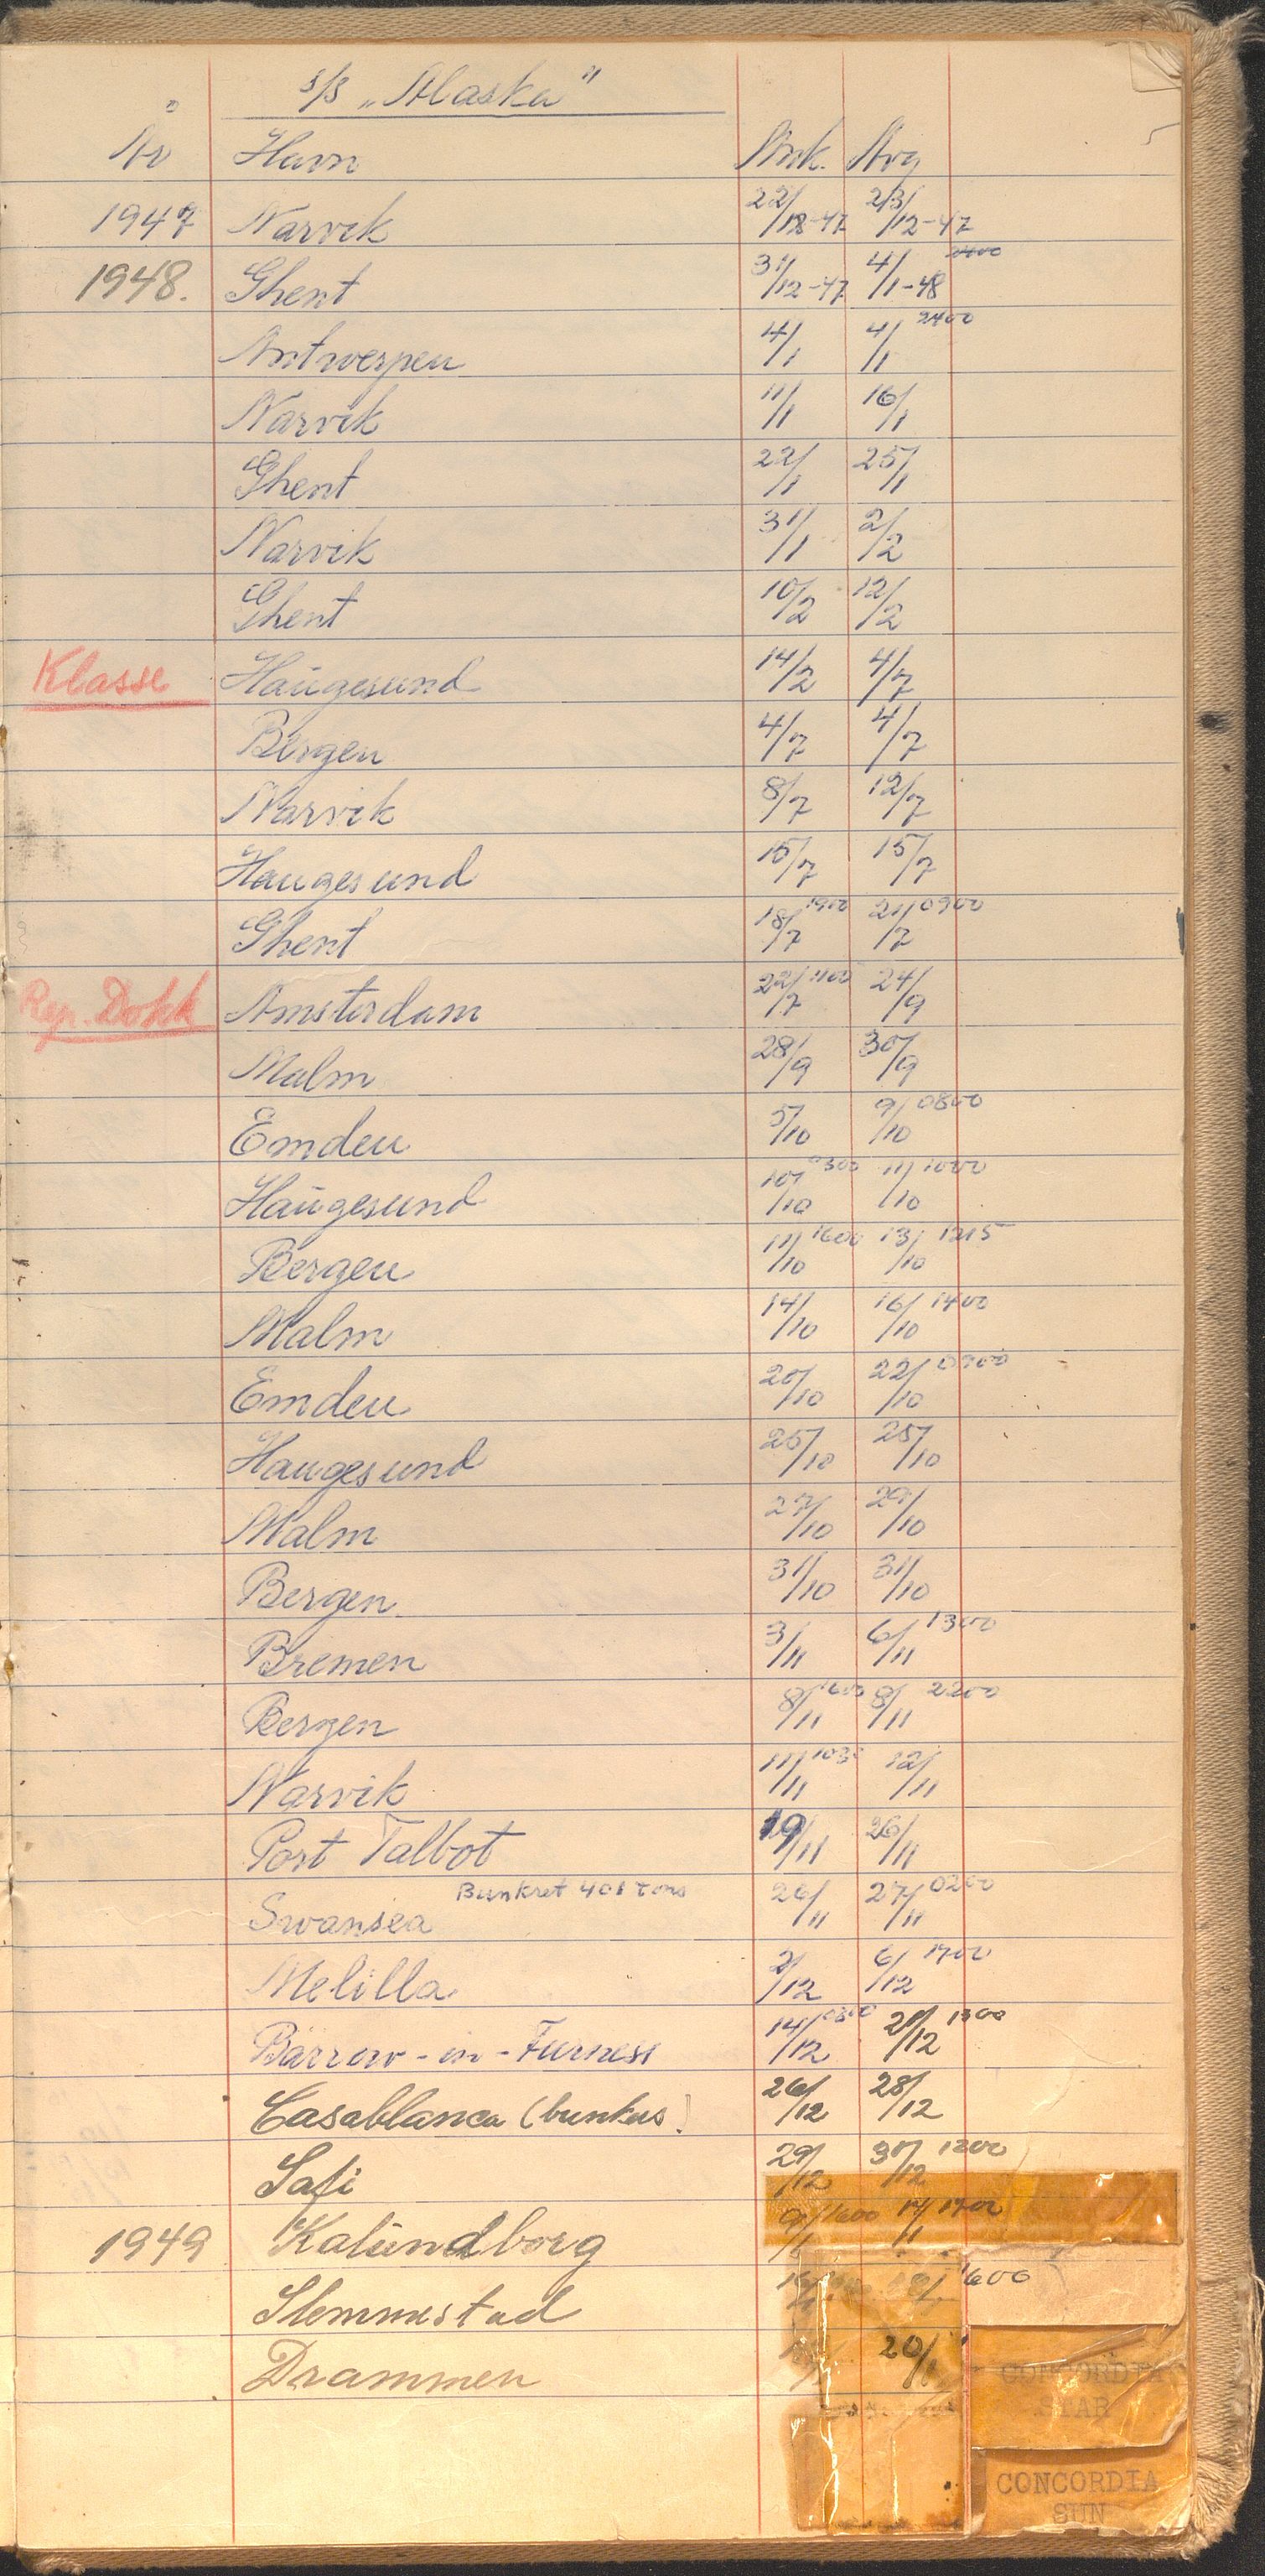 s/s „Alaska"
År Havn Ank. Avg
1947 Narvik 22/12-47 23/12-47
1948. Ghent 31/12-47 4/1-48
Antwerpen 4/1 4/1 2400
Narvik 11/1 16/1
Ghent 22/1 25/1
Narvik 31/1 2/2
Ghent 10/2 12/2
Klasse Haugesund 14/2 4/7
Bergen 4/7 4/7
Narvik 8/7 12/7
Haugesund 15/7 15/7
Ghent 18/7 1900 21/7 0900
Rep. Dokk Amsterdam 22/7 1100 24/9
Malm 28/9 30/9
Emden 5/10 9/10 0800
Haugesund 10/10 11/10 1000
Bergen 11/10 1600 13/10 1215
Malm 14/10 16/10 1400
Emden 20/10 22/10
Haugesund 25/10 25/10
Malm 27/10 29/10
Bergen 31/10 31/10
Bremen 3/11 6/11 1300
Bergen 8/11 1600 8/11 2200
Narvik 11/11 1030 12/11
Port Talbot 19/11 26/11
Swansea Bunkret 401 tons 26/11 27/11 0200
Melilla 2/12 6/12
Barrow-in-Furness 14/12 21/12 1300
Casablanca (bunkers) 26/12 28/12
Safi 29/12 30/12 1200
1949 Kalundborg 9/1 1600
Slemmestad 1600
Drammen 20/1
CONCORDIA
STAR
CONCORDIA
SUN